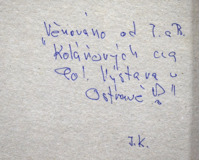 Věnováno od J. a B.
"Kolářových cca
Pol. Výstava v
Ostravě "
J.K.